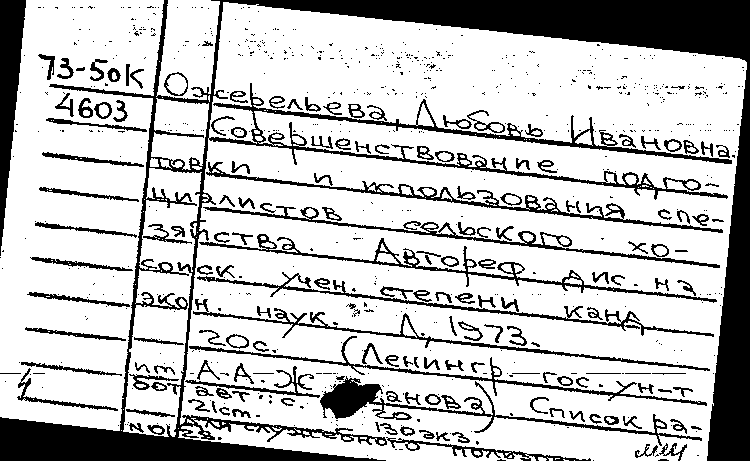 73-5ок
4603
Ожерельева, Любовь Ивановна.
Совершенствование подго-
товки и использования спе-
циалистов сельского хо-
зяйства. Автореф. дис. на
соиск. учен. степени канд
экон. наук. Л., 1973.
20с. (Ленингр. гос. ун-т
А.А. Ж анова). Список ра-
бот авт.: с. 20.
21ст. 130экз.
для служебного